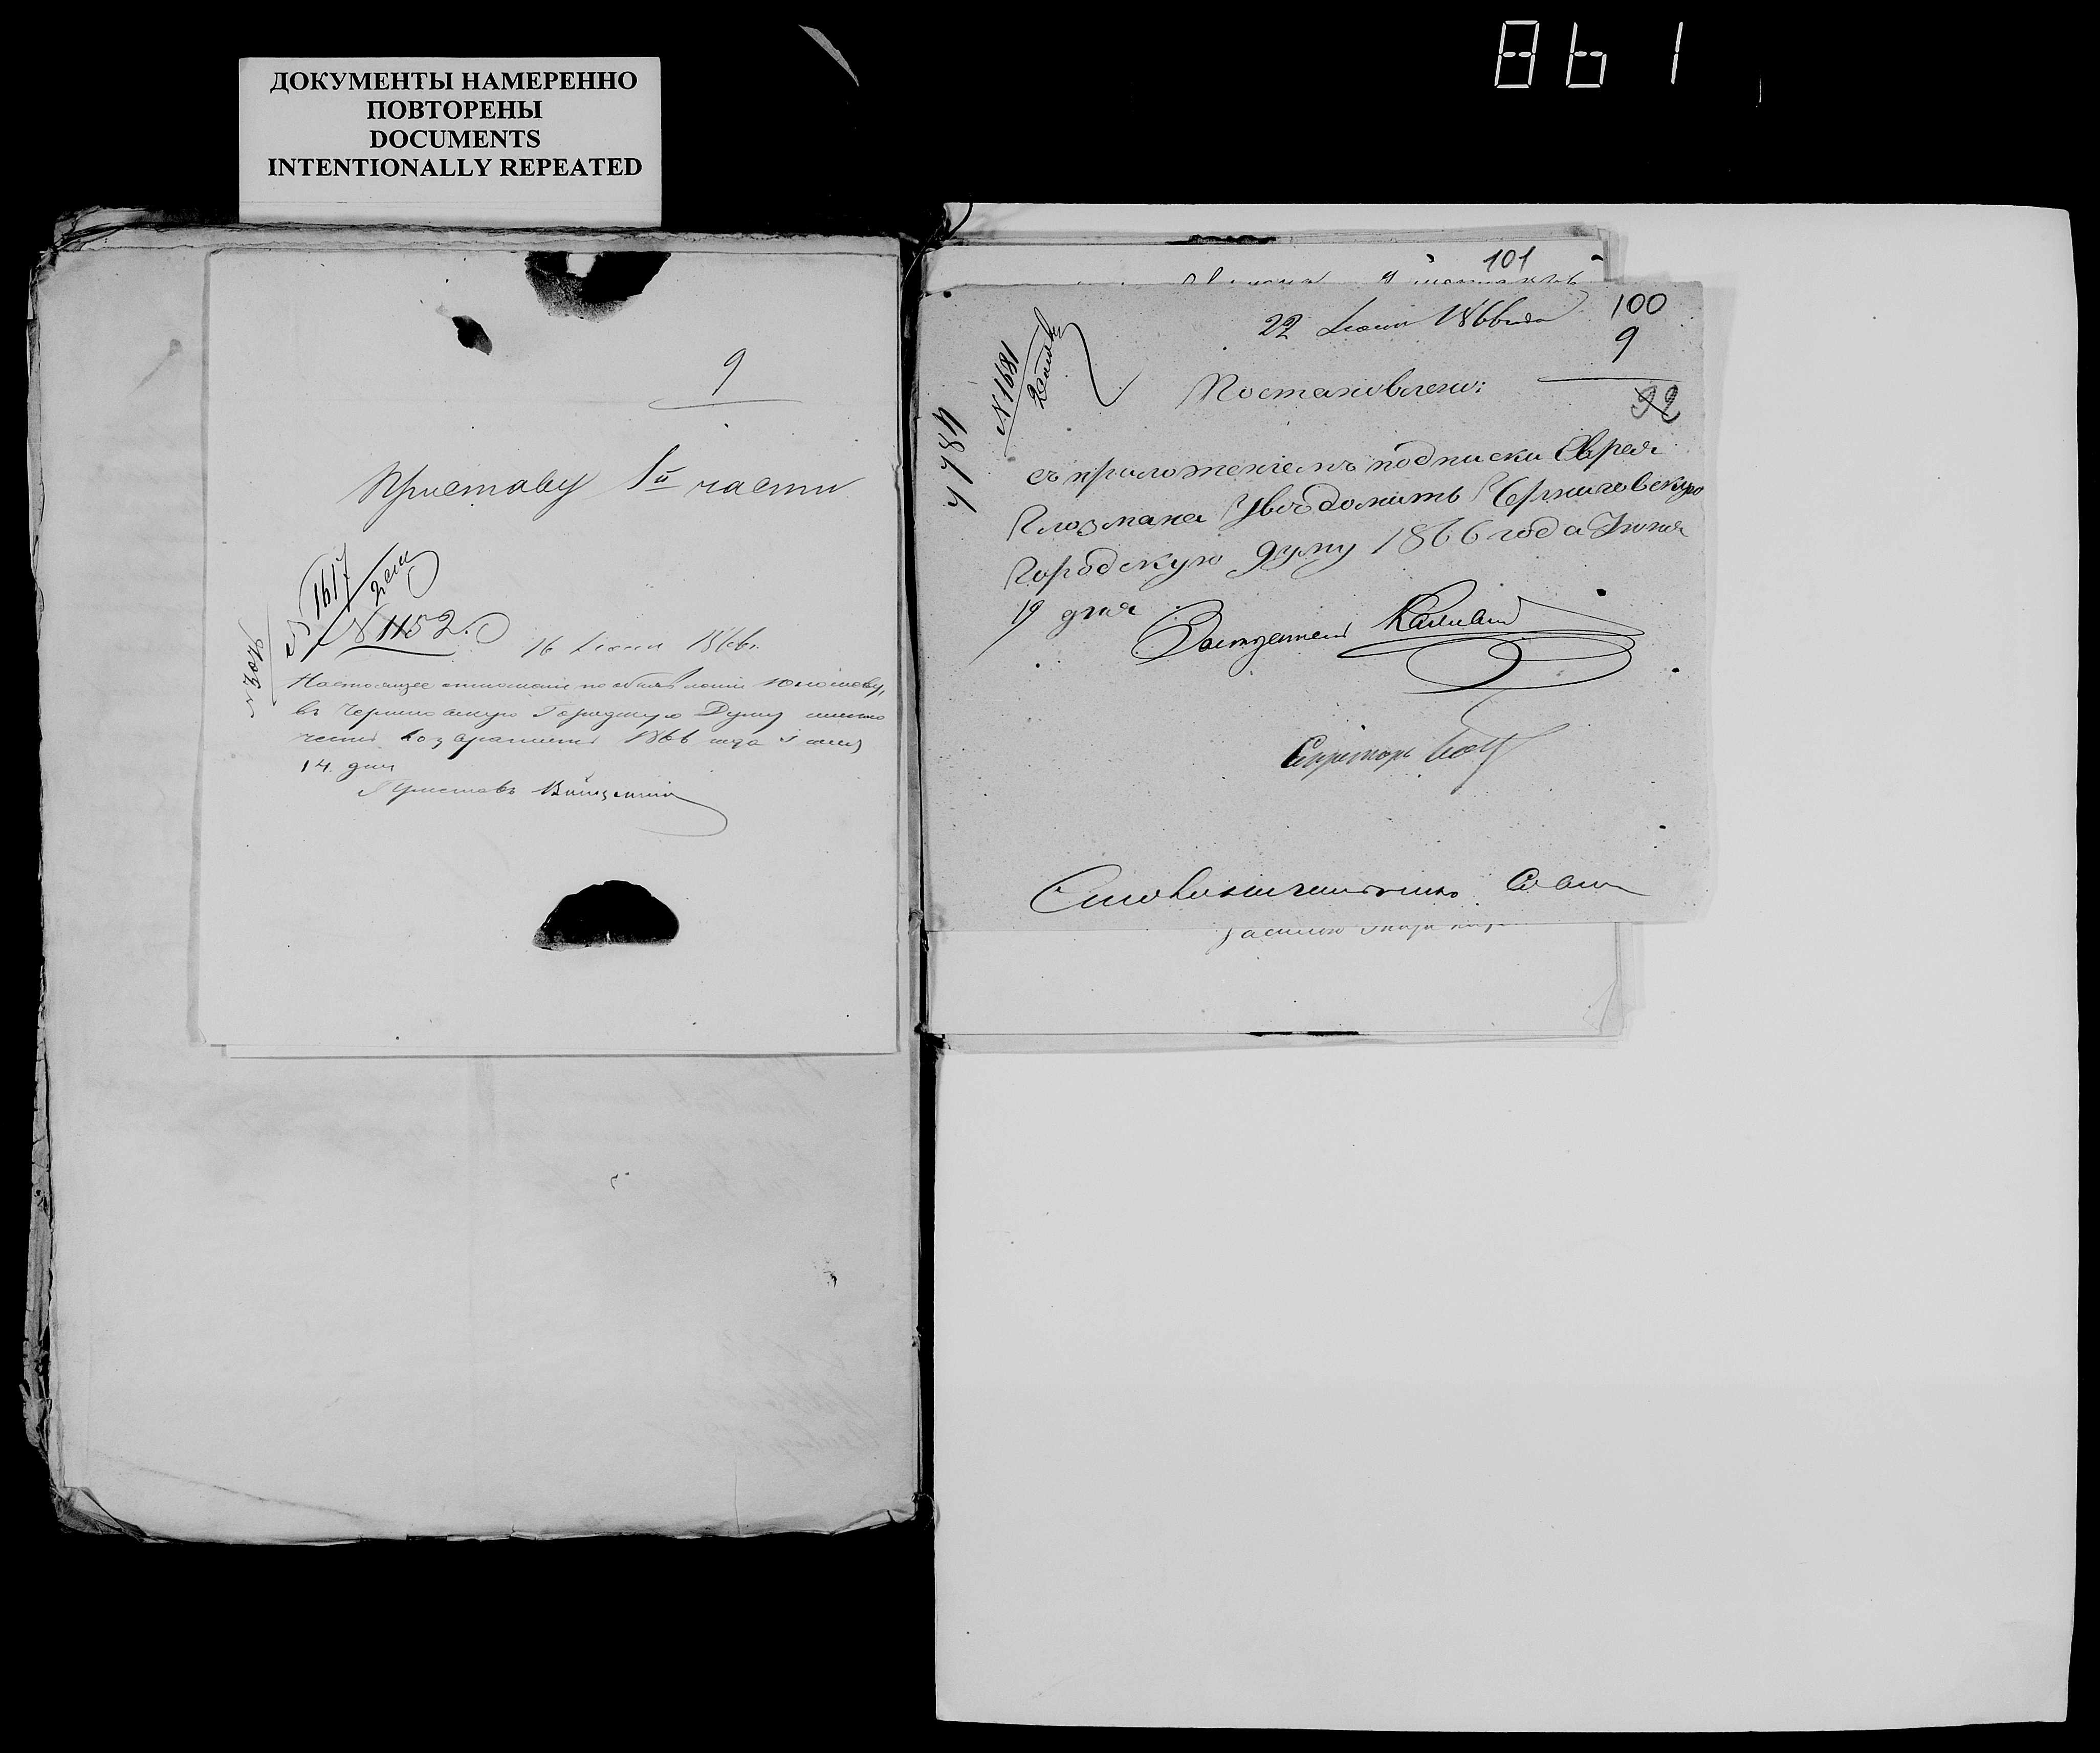 861
ДОКУМЕНТЫ НАМЕРЕННО
ПОВТОРЕНЫ
DOCUMENTS
INTENTIONALLY REPEATED
9
Приставу 1й части
№ 1617
2 стол
№ 1152.
16 Июня 1866 г.
Настоящее отношение по объявлении
въ Черниговскую Городскую Думу
честь возвратить 1866 года Июня
14 дня
Приставъ
101
100
9
92
22 Июня 1866 года
№ 1681
2 столъ
4784
Постановлено:
съ приложеніемъ подписки Еврея
Глозмана Увѣдомить Черниговскую
Городскую Думу 1866 года Июня
19 дня
Засѣдатель
Секретарь
Столоначальникъ